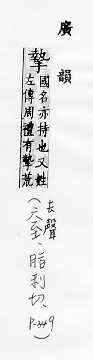 廣韻
摯
國名亦持也又姓
左傳周禮有摯荒
去聲
(六至、脂利切、
P.349)